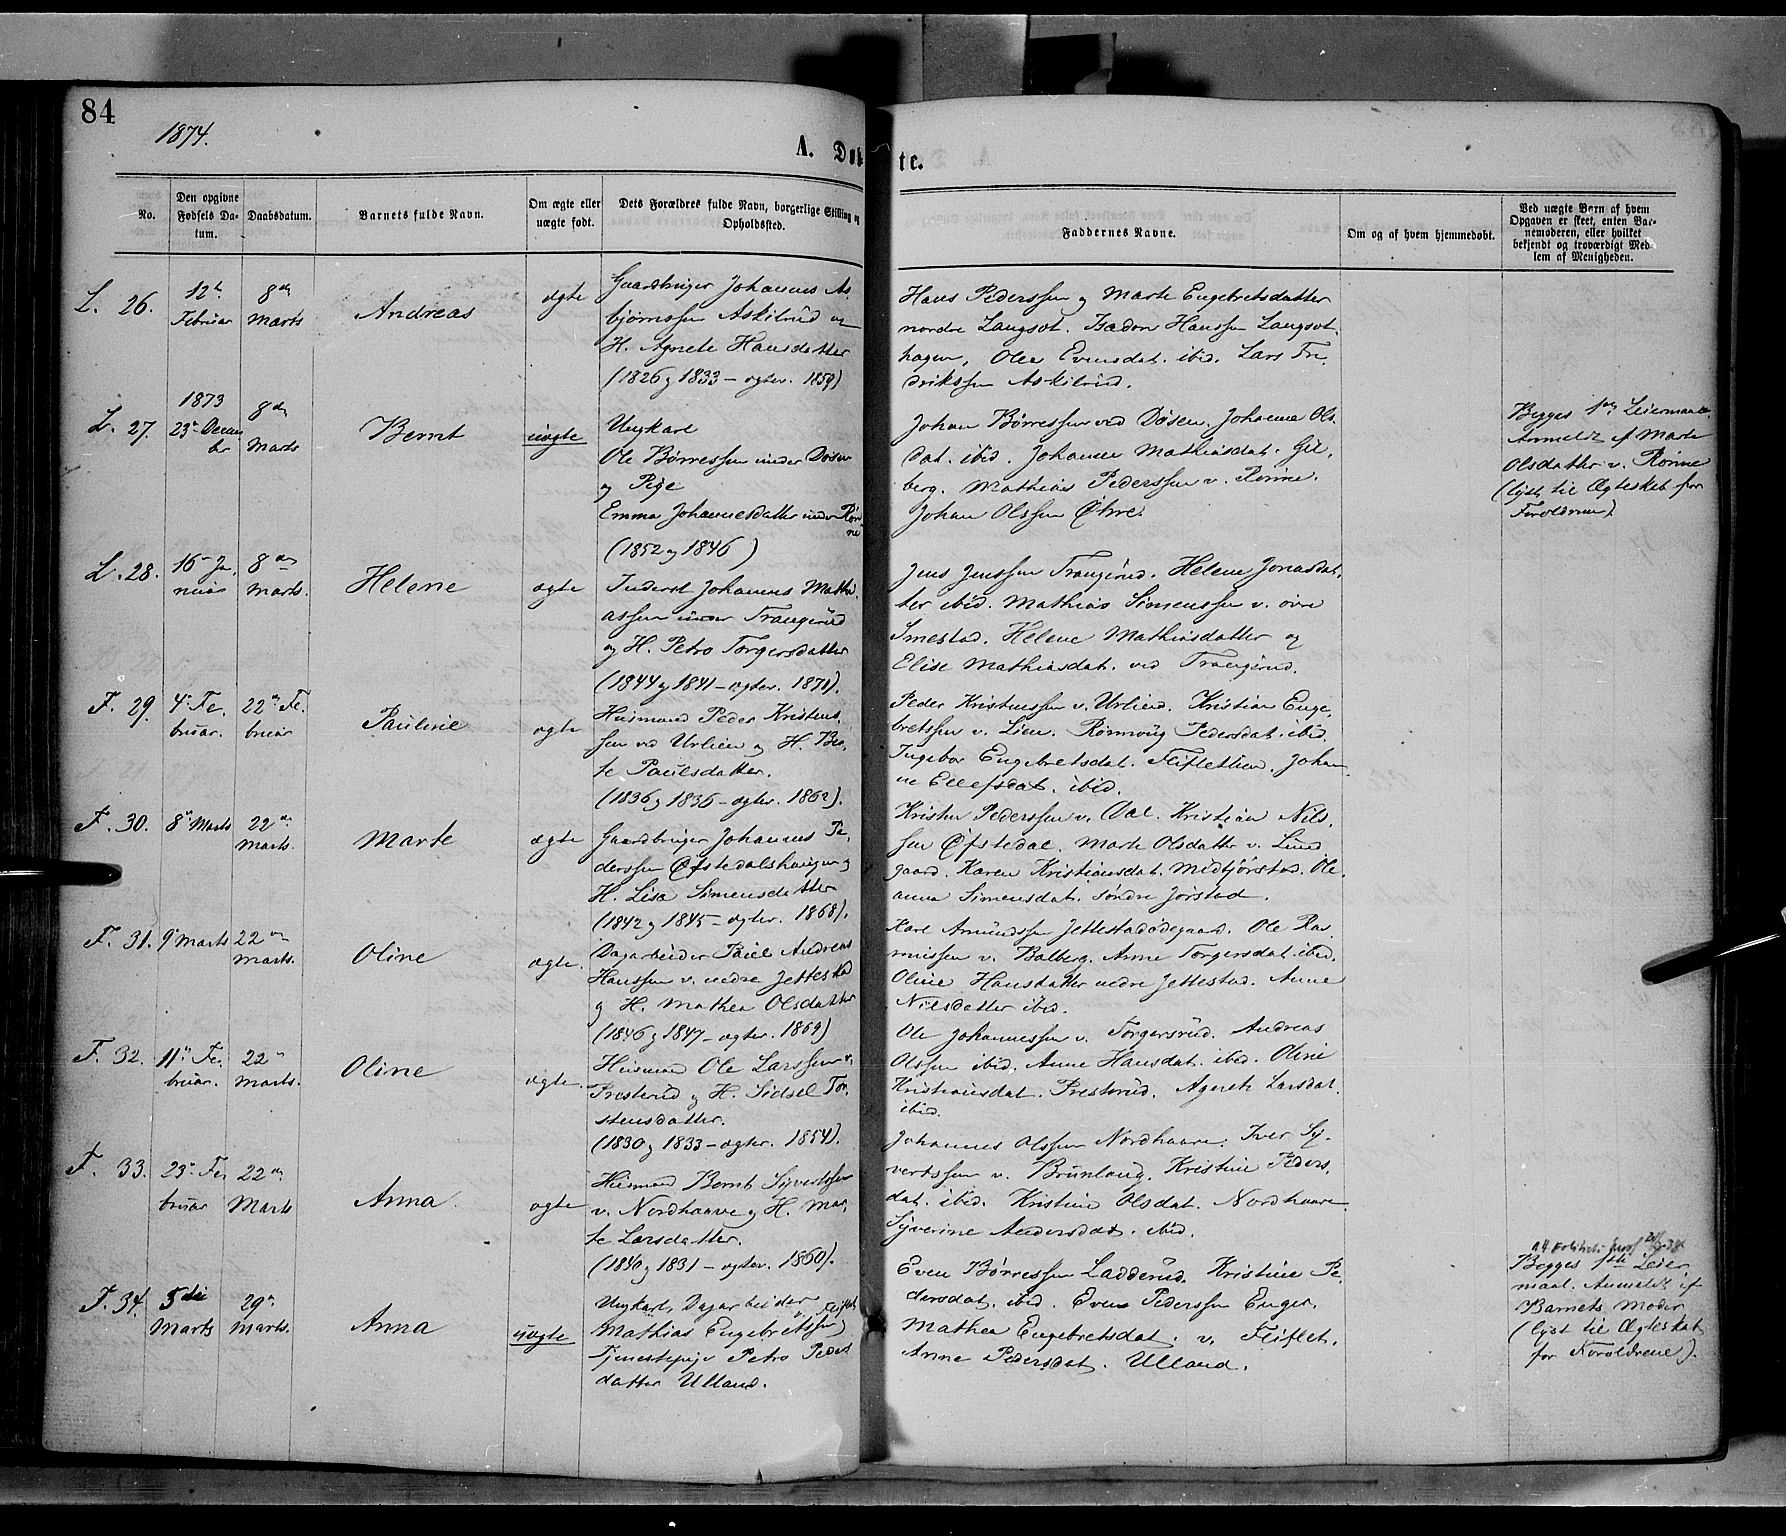 84
1874.
A. Døbte.
No.
Den opgivne
Fødsels Da-
tum.
Daabsdatum.
Barnets fulde Navn.
Om ægte eller
uægte født.
Dets Forældres fulde Navn, borgerlige Stilling og
Opholdssted.
Faddernes Navne.
Om og af hvem hjemmedøbt.
Ved uægte Børn af hvem
Opgaven er skeet, enten Bar-
nemoderen, eller hvilket
bekjendt og troværdigt Med-
lem af Menigheden.
L. 26.
12te
Februar
8de
Marts
Andreas
ægte
Gaardbruger Johannes As-
bjørnssen Askilrud og
H. Agnete Hansdatter
(1826 og 1833 – ægtev. 1859)
Hans Pederssen og Marte Engebretsdatter
nordre Langsvt. Hanssen Langsvt
hagen, Olea Evensdat. ibid. Lars Fre
driksen Askilrud.
L. 27.
1873
23de Decem
ber
8de
Marts
Bernt
uægte
Ungkarl
Ole Børressen under Døsen
og Pige
Emma Johannesdatter under Røn-
ne
(1852 og 1846)
Johan Børressen ved Døsen. Johanne Ols-
dat. ibid. Johanne Mathiasdat. Gil-
berg. Mathias Pederssen v. Rønne.
Johan Olssen Øhre.
Begges 1ste Leiermaal.
Anmeldt af Marte
Olsdatter v. Rønne
(lyst til Ægteskab for
Forældrene).
L. 28.
16de Ja-
nuar
8de
Marts.
Helene
ægte
Inderst Johannes Mathi-
assen under Trangerud
og H. Petra Torgersdatter
(1844 og 1841 – ægtev. 1871).
Jens Jenssen Trangerud. Helene Jonasdat-
ter ibid. Mathias Simenssen v. øvre
Smestad. Helene Mathiasdatter og
Elise Mathiasdat. ved Trangerud.
F. 29.
4de Fe-
bruar.
22de Fe-
bruar
Pauline
ægte
Husmand Peder Kristens-
sen ved Urlien og H. Be-
te Paulsdatter.
(1836 og 1836 – ægtev. 1862).
Peder Kristenssen v. Urlien. Kristian Enge-
bretssen v. Lien. Rønnaug Pedersdat. ibid.
Ingebor Engebretsdat. Flifletlien. Johan-
ne Ellefsdat. ibid.
F. 30.
8de Marts
22de
Marts.
Marte
ægte
Gaardbruger Johannes Pe-
derssen Øfstedalshaugen og
H. Lisa Simensdatter
(1842 og 1845 – ægtev. 1868).
Kristen Pederssen v. Dal. Kristian Nils-
sen Øfstedal. Marte Olsdatter v. Lund
gaard. Karen Kristiansdat. Midtjørstad. Ole
anna Simensdat. søndre Jørstad.
F. 31.
9de Marts
22de
Marts.
Oline
ægte.
Dagarbeider Paul Andreas
Hanssen v. nedre Jettestad
og H. Mathea Olsdatter
(1846 og 1847 – ægtev. 1869)
Karl Amundssen Jettestadødegaard. Ole Ras-
mussen v. Balberg. Anne Torgersdat. ibid.
Oline Hansdatter nedre Jettestad. Anne
Nilsdatter ibid.
F. 32.
11te Fe-
bruar.
22de
Marts.
Oline
ægte.
Husmand Ole Larssen v.
Presterud og H. Sidsel Tor-
stensdatter.
(1830 og 1833 – ægtev. 1854).
Ole Johannessen v. Torgersrud. Andreas
Olssen ibid. Anne Hansdat. ibid. Oline
Kristiansdat. Presterud. Agnete Larsdat.
ibid.
F. 33.
23de Fe-
bruar
22de
Marts
Anna
ægte
Husmand Bernt Syvertssen
v. Nordhaave og H. Mar-
te Larsdatter.
(1840 og 1831 – ægtev. 1860).
Johannes Olssen Nordhaave. Iver Sy-
vertssen v. Brunlaug. Kristine Peders-
dat. ibid. Kristine Olsdat. Nordhaave
Syverine Andersdat. ibid.
F. 34.
5te
Marts
29de
Marts.
Anna
uægte
Ungkarl, Dagarbeider
Mathias Engebretssen Fliflet og
Tjenestepige Petra Peders
datter Ulland.
Even Børressen Ladderud. Kristine Pe-
dersdat. ibid. Even Pederssen Enger.
Mathea Engebretsdat. v. Fliflet.
Anne Pedersdat. Ulland.
Begges 1ste Leier
maal. Anmeldt af
Barnets Moder
(lyst til Ægteskab
for Forældrene).